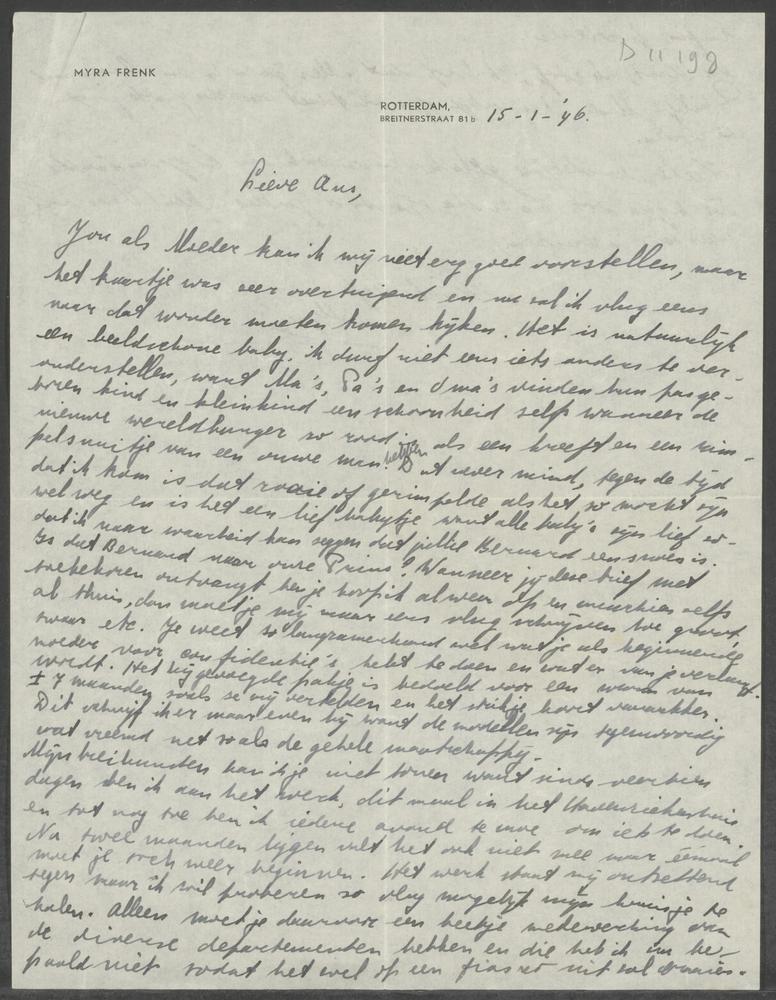 D 11198
MYRA FRENK
ROTTERDAM,
BREITNERSTRAAT 81b 15-1-'46.
Lieve Ans,
Jou als Moeder kan ik mij niet erg goed voorstellen, maar
het kaartje was zeer overtuigend en nu zal ik vlug eens
naar dat wonder moeten komen kijken. Het is natuurlijk
een beeldschone baby, ik durf niet eens iets anders te ver-
onderstellen, want Ma's, Pa's en Oma's vinden hun pasge-
boren kind en kleinkind een schoonheid zelf wanneer de
nieuwe wereldburger zo rood is als een kreeft en een rim-
pelsnuitje van een ouwe man hebben. Dat never mind, tegen de tijd
dat ik kom is dat rooie of gerimpelde als het zo mocht zijn
wel weg en is het een lief babytje want alle baby's zijn lief zo-
dat ik naar waarheid kan zeggen dat jullie Bernard een snoes is.
Is dat Bernard naar onze Prins? Wanneer je deze brief met
toebehoren ontvangt ben je hoop ik alweer op en misschien zelfs
al thuis, dan moet je mij maar eens vlug schrijven hoe groot,
zwaar etc. Je weet zo langzamerhand wel wat je als beginnende
moeder voor confidentie's hebt te doen en wat er van je verlangt
wordt. Het bijgevoegde pakje is bedoeld voor een wurm van
± 7 maanden zoals ze mij vertelden en het strikje hoort vanachter.
Dit schrijf ik er maar even bij want de modellen zijn tegenwoordig
wat vreemd net zoals de gehele maatschappij.
Mijn breikunsten kan ik je niet tonen want sinds veertien
dagen ben ik aan het werk, dit maal in het Havenziekenhuis
en tot nog toe ben ik iedere avond te moe om iets te doen.
Na twee maanden liggen valt het ook niet mee maar éénmaal
moet je toch weer beginnen. Het werk staat mij ontzettend
tegen maar ik wil proberen zo vlug mogelijk mijn huisje te
halen. Alleen moet je daarvoor een beetje medewerking van
de diverse departementen hebben en die heb ik nu be-
paald niet zodat het wel op een fiasco uit zal draaien.